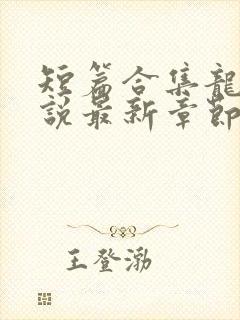 短篇合集龍
說最新章節
王登渤